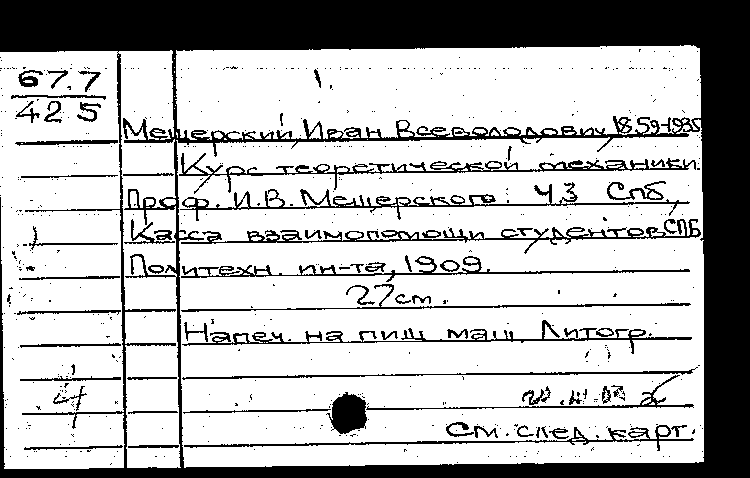 1.
67.7
425
Мещерский, Иван Всеволодович, 1859-1935
Курс теоретической механики.
Проф. И.В. Мещерского. Ч.3 Спб,
Касса взаимопомощи студентов СПБ
Политехн. ин-та, 1909.
27 cm.
Напеч. на пиш. маш. Литогр.
4
См. след. карт.